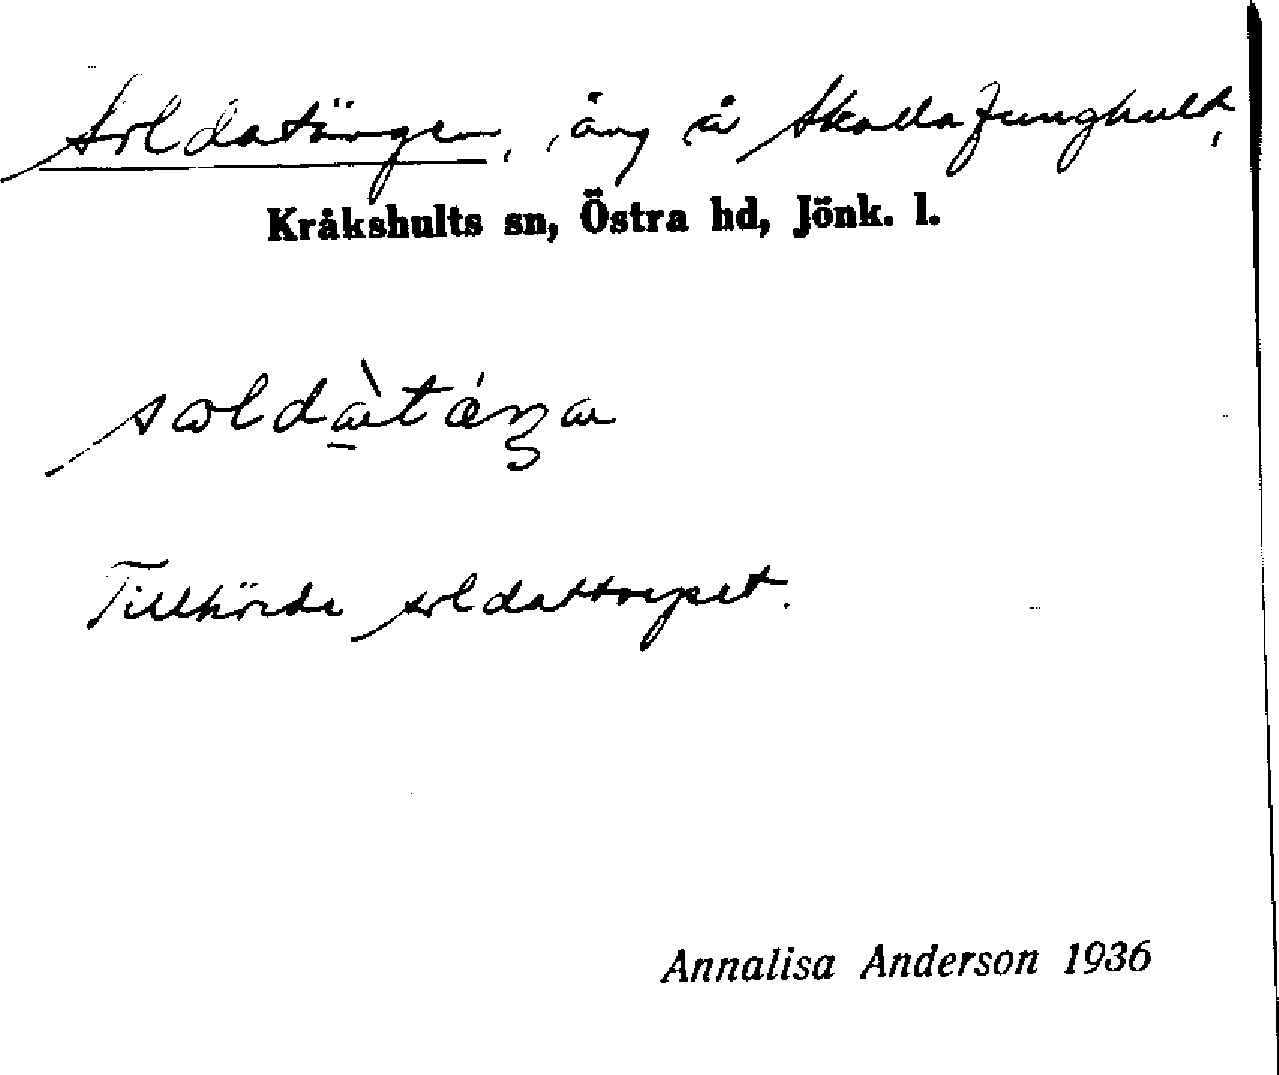 Soldatängen, äng å Skallafjunghult,
Kråkshults sn, Östra hd, Jönk. l.
Tillhörde soldattorpet.
Annalisa Anderson 1936